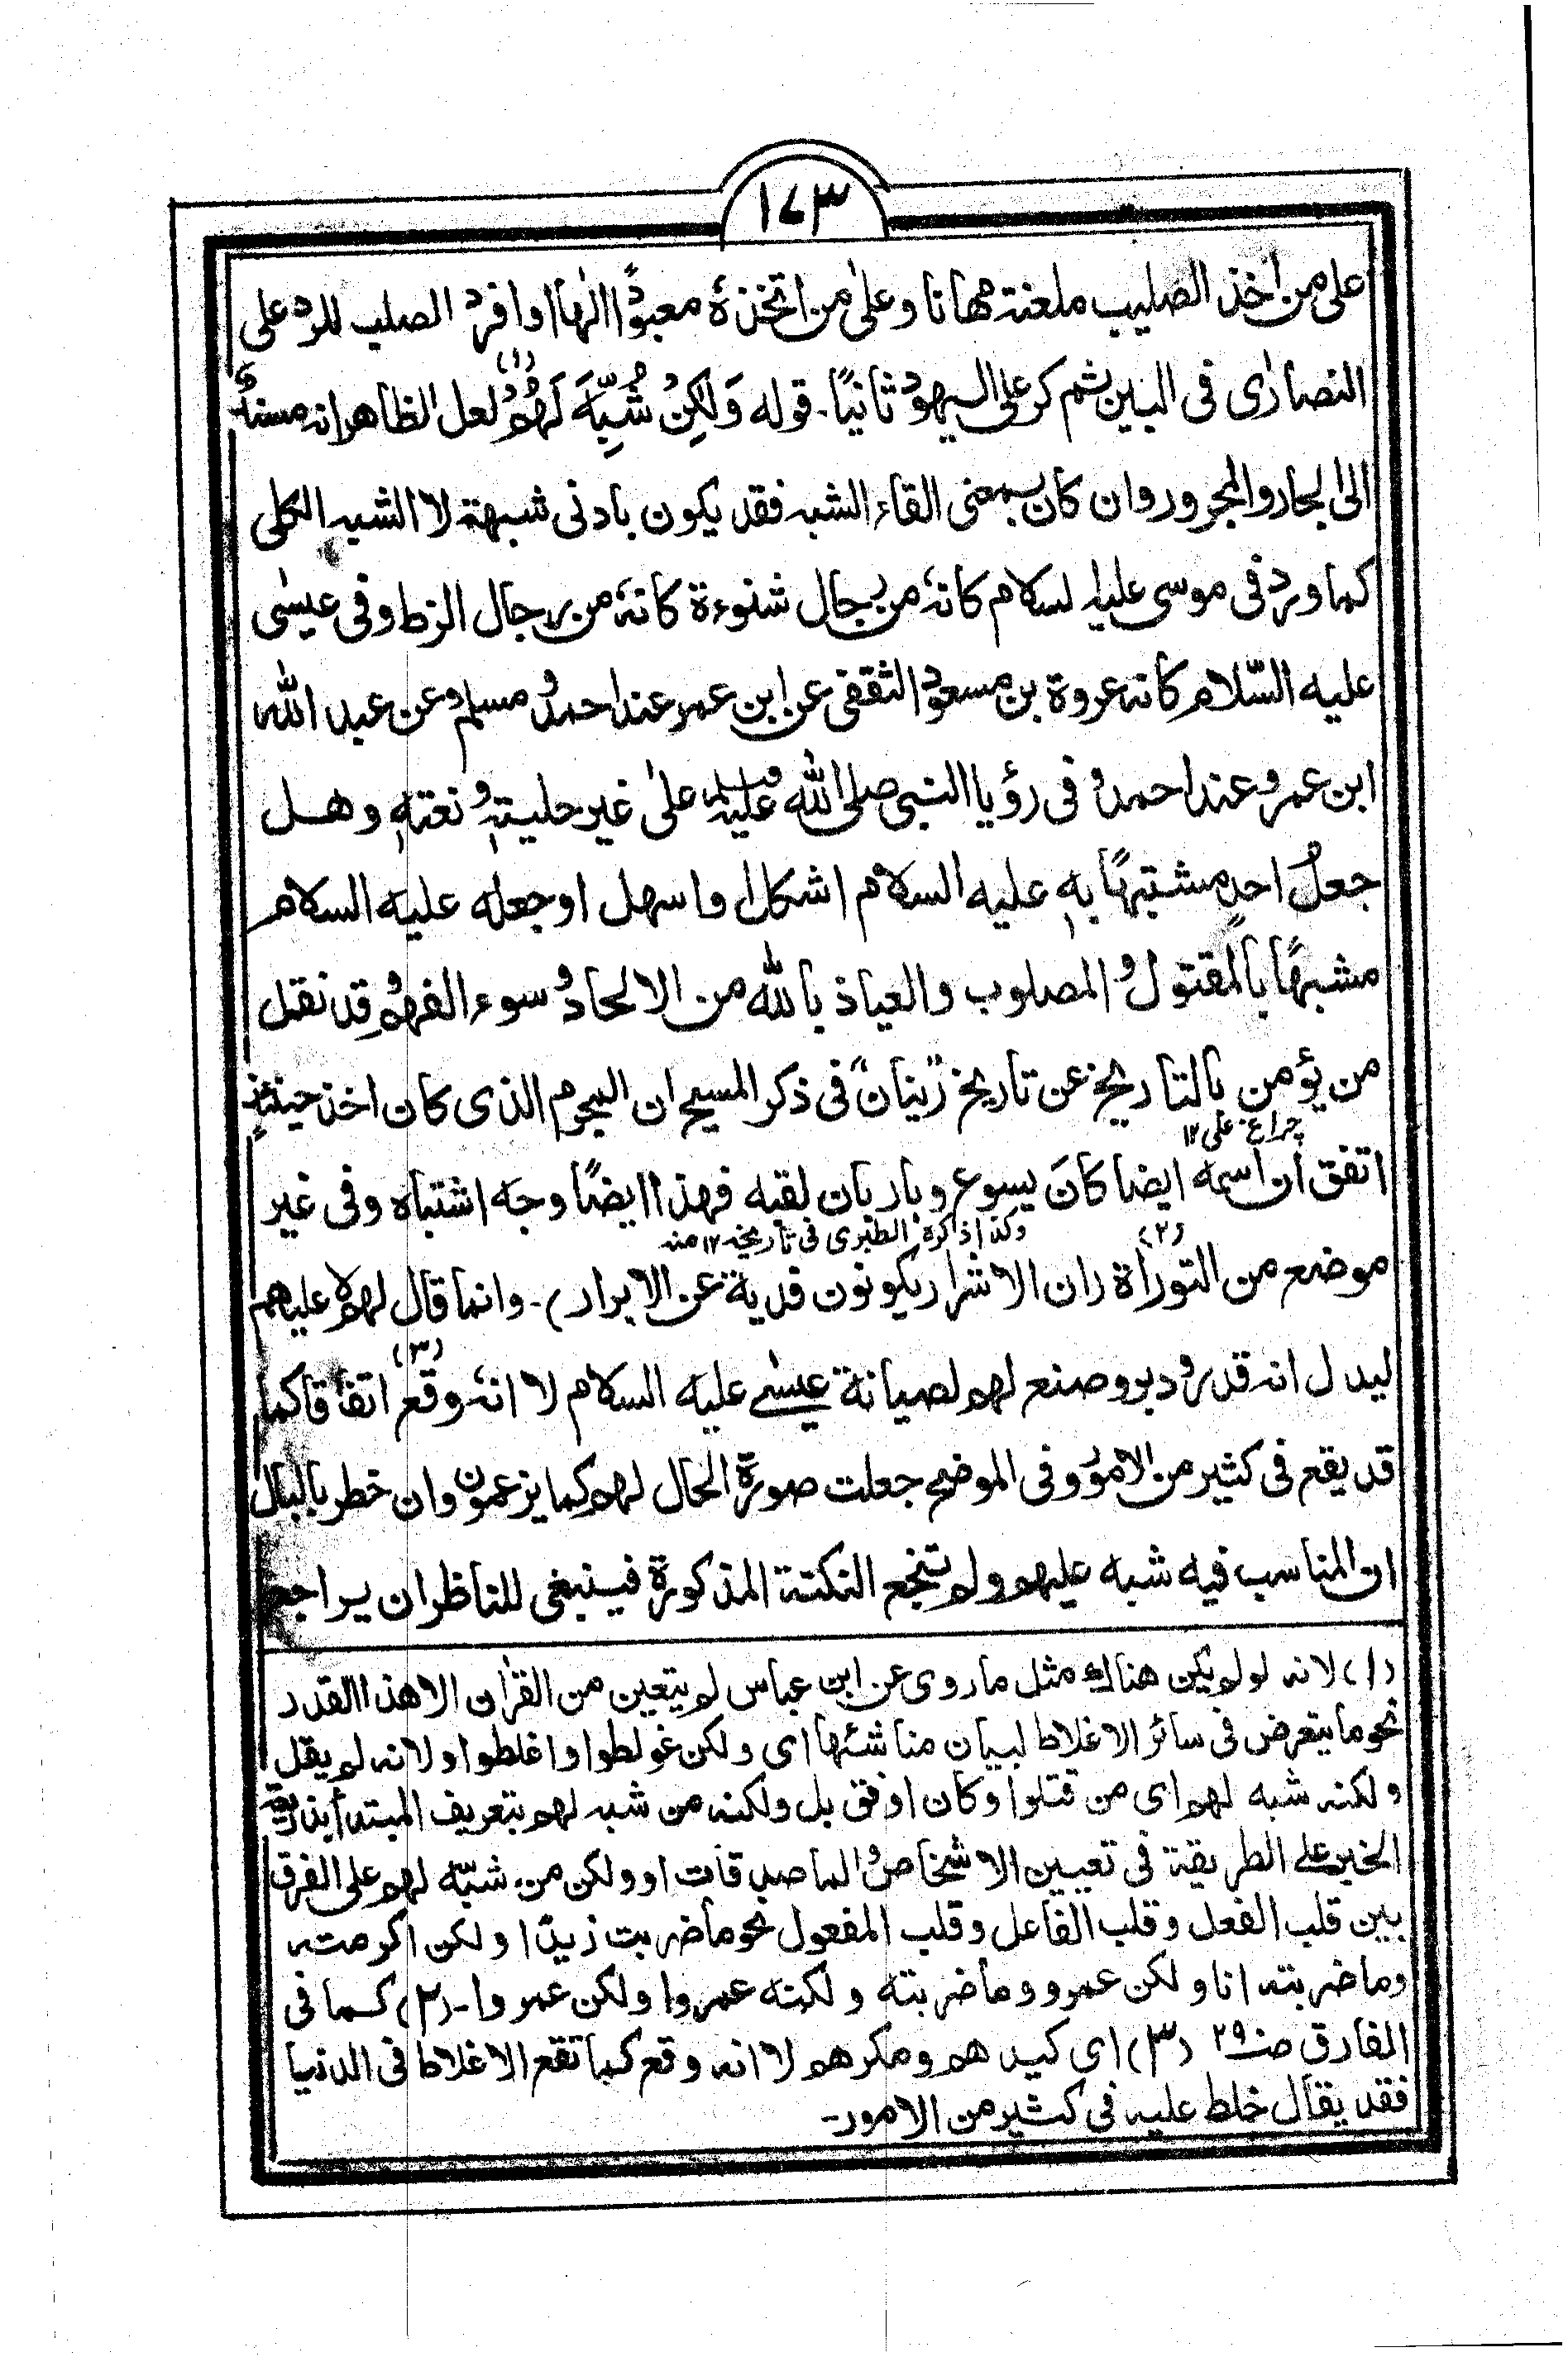 ١٧٣
على من اخذ الصليب ملعنة مهانا وعلىٰ من اتخذهٗ معبودًا الٰها او افرد الصلب للرد على
النصارٰى فى البين ثم كر على اليهود ثانيًا۔ قوله وَلٰكِنْ شُبِّهَ لَهُمْ (١) لعل الظاهر انه مسندٌ
الى الجار والمجرور وان كان بمعنى القاء الشبه فقد يكون بادنى شبهة لا الشبه الكلى
كما ورد فى موسى عليه السلام كانهٗ من رجال شنوءة كانهٗ من رجال الزط وفى عيسٰى
عليه السّلام كانه عروة بن مسعود الثقفى عن ابن عمر عند احمد و مسلم وعن عبد الله
ابن عمرو عند احمد و فى رؤيا النبى صلى الله عليه وسلم علىٰ غير حليته و نعته وهل
جعلُ احدٍ مشتبهًا به عليه السلام اشكل او اسهل او جعله عليه السلام
مشبهًا بالمقتول و المصلوب والعياذ بالله من الالحاد و سوء الفهم وقد نقل
من يؤمن بالتاريخ عن تاريخ رينان فى ذكر المسيح ان المجرم الذى كان اخذ حينئذٍ
چراغ على ١٢
اتفق ان اسمه ايضا كان يسوع وبار بان لقبه فهذا ايضًا وجه اشتباه وفى غير
وكذا ذكرهٗ الطبرى فى تاريخه ١٢ منه
موضع من التوراة (٢) (ان الاشرار يكونون فدية عن الابرار)۔ وانما قال لهم لا عليهم
ليدل انه قد رُدّ بر وصنع لهم لصيانة عيسٰے عليه السلام لا انهٗ وقع (٣) اتفاقا كما
قد يقع فى كثير من الامور وفى الموضح جعلت صورة الحال لهم كما يزعمون وان خطر بالبال
ان المناسب فيه شبه عليهم ولم تنجع النكتة المذكورة فينبغى للناظر ان يراجع
(١) لانه لو لم يكن هناك مثل ما روى عن ابن عباس لم يتعين من القرٰان الا هذا القدر
نحو ما يتعرض فى سائر الاغلاط لبيان مناشئها اى ولكن غولطوا او اغلطوا ولانه لم يقل
ولكنه شبه لهم اى من قتلوا وكان اوفق بل ولكنه من شبه لهم بتعريف المبتدأ
الخبر على الطريقة فى تعيين الاشخاص و الماصدقات او ولكن من شبّه لهم على الفرق
بين قلب الفعل وقلب الفاعل وقلب المفعول نحو ما ضربت زيدًا ولكن اكرمته
وما ضربته انا ولكن عمرو وما ضربته ولكنه عمروا ولكن عمروا۔ (٢) كما فى
الفارق صـ ٢٩ (٣) اى كيدهم ومكرهم لا انه وقع كما تقع الاغلاط فى الدنيا
فقد يقال خلط عليه فى كثير من الامور۔